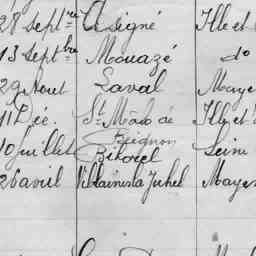 28 Septbre Acigné Ille et
13 Septbre Mouazé do
29 Aout Laval Maye
11 Déc. St Malo de Ille et
Beignon
10 Juillet Bihorel Seine
26 avril Villaines la Juhel Maye